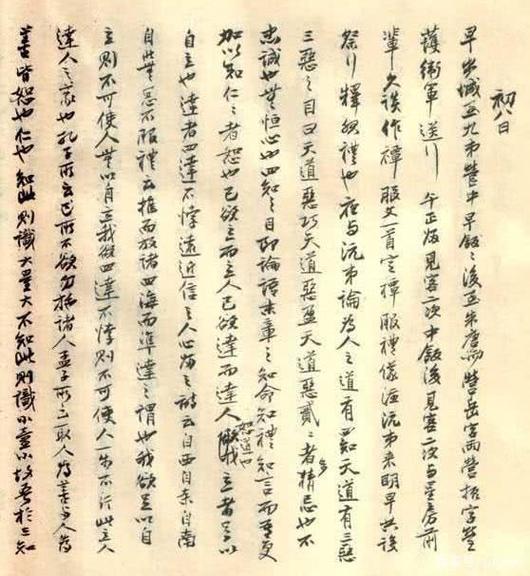 初八日
早出城至九弟營中早飯々後至朱唐洲營岳字兩營振字營
護衛軍送行 午正返見客二次中飯後見客二次与星房前
輩久談作禫服文一首定禫服禮儀沅弟來明早共
祭行釋服禮也夜与沅弟論為人之道有四知天道有三惡
三惡之目曰天道惡巧天道惡盈天道惡貳々者多猜忌也不
忠誠也無恒心也四知之目即論語末章之知命知禮知言而吾更
加以知仁々者恕也己欲立而立人己欲達而達人恕道也立者足以
自立也達者四達不悖遠近信之人心歸之詩云自西自東自南
自北無思不服禮云推而放諸四海而準達之謂也我欲足以自
立則不可使人無以自立我欲四達不悖則不可使人一步不行此立人
達人之義也孔子所云己所不欲勿施諸人孟子所云取人為善与人為
善皆恕也仁也知此則識大量大不知此則識小量小故吾於三知